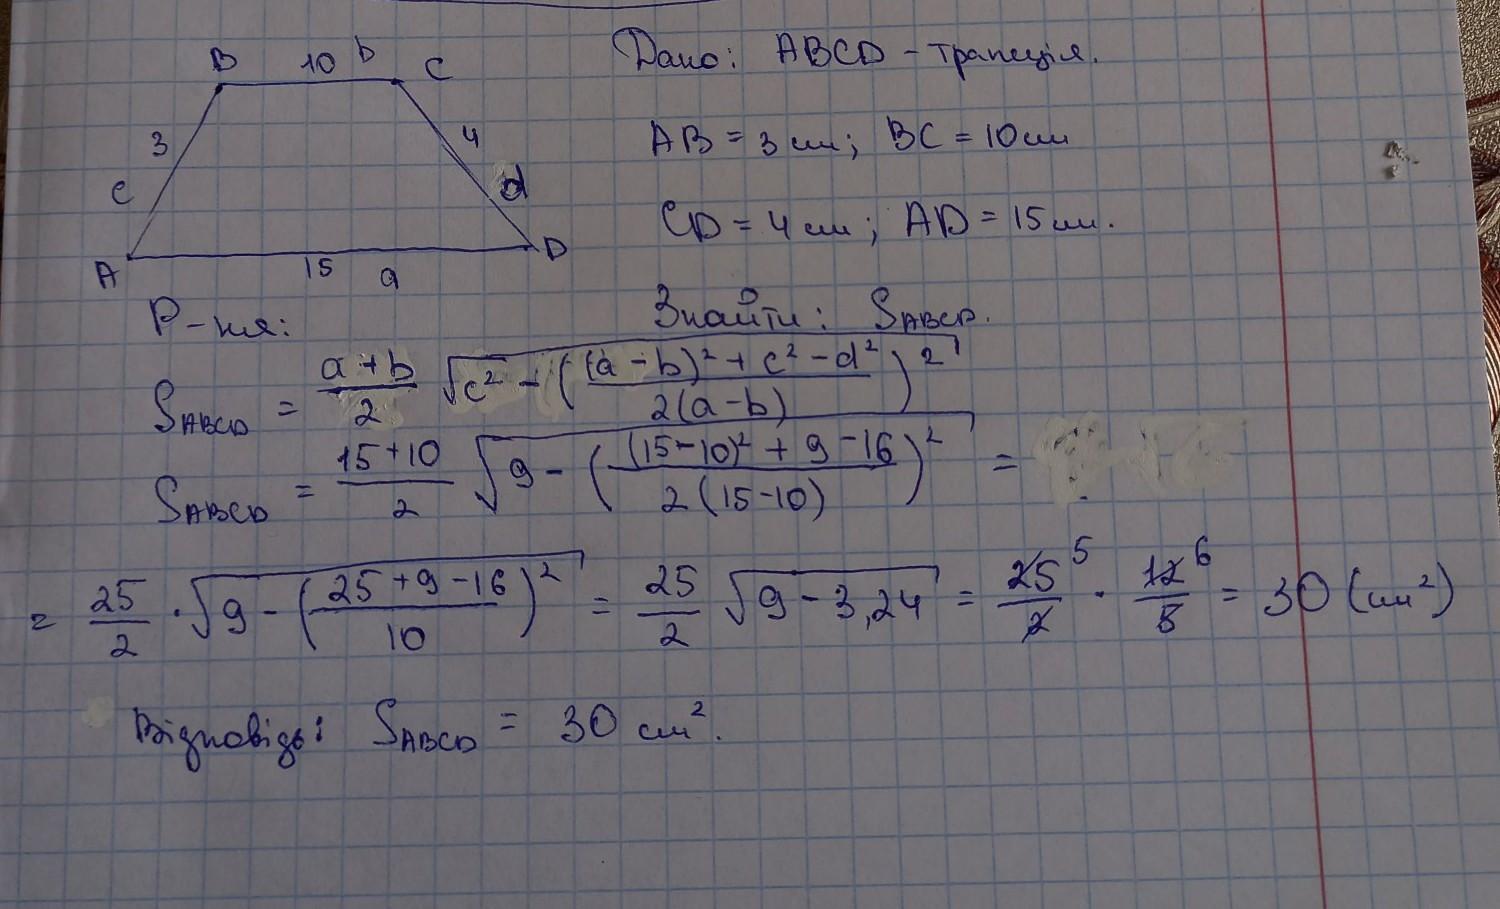 B 10 b C
3 4
c d
A 15 a D
Дано: ABCD - трапеція.
AB = 3 см; BC = 10 см
CD = 4 см; AD = 15 см.
Р-ня: Знайти: S_ABCD.
S_ABCD = (a + b)/2 √(c² - (((a - b)² + c² - d²)/(2(a - b)))²)
S_ABCD = (15 + 10)/2 √(9 - (((15 - 10)² + 9 - 16)/(2(15 - 10)))²) =
= 25/2 · √(9 - ((25 + 9 - 16)/10)²) = 25/2 √(9 - 3,24) = 25⁵/2 · 12⁶/5 = 30 (см²)
Відповідь: S_ABCD = 30 см².